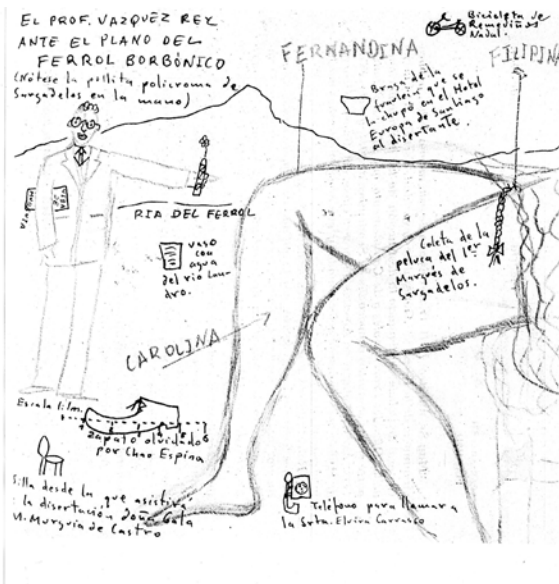 EL PROF. VAZQUEZ REY
ANTE EL PLANO DEL
FERROL BORBÓNICO
(Nótese la pollita policroma de
Sargadelos en la mano)
Bicicleta de
Remedios
Nadal.
FERNANDINA
FILIPINA
Braga de la
fraulein que se
la chupó en el Hotel
Europa de Santiago
al disertante.
RIA DEL FERROL
vaso
con
agua
del río Lan-
dro.
Coleta de la
peluca del 1er
Marqués de
Sargadelos.
CAROLINA
Escala
zapato olvidado
por Chao Espina
Silla desde la que asistirá
a la disertación doña Gala
Murguía de Castro
Teléfono para llamar a
la Srta. Elvira Carrasco